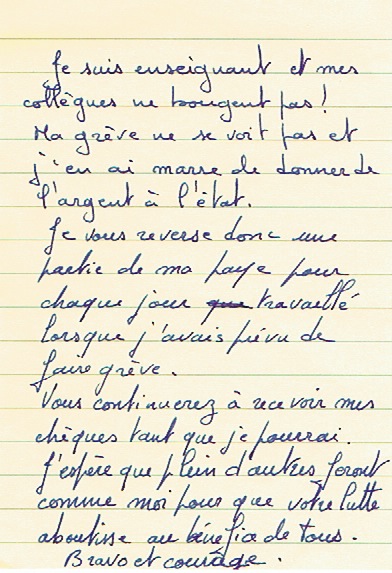 Je suis enseignant et mes
collègues ne bougent pas !
Ma grève ne se voit pas et
j'en ai marre de donner de
l'argent à l'état.
Je vous reverse donc une
partie de ma paye pour
chaque jour que travaillé
lorsque j'avais prévu de
faire grève.
Vous continuerez à recevoir mes
chèques tant que je pourrai.
J'espère que plein d'autres feront
comme moi pour que votre lutte
aboutisse au bénéfice de tous.
Bravo et courage.